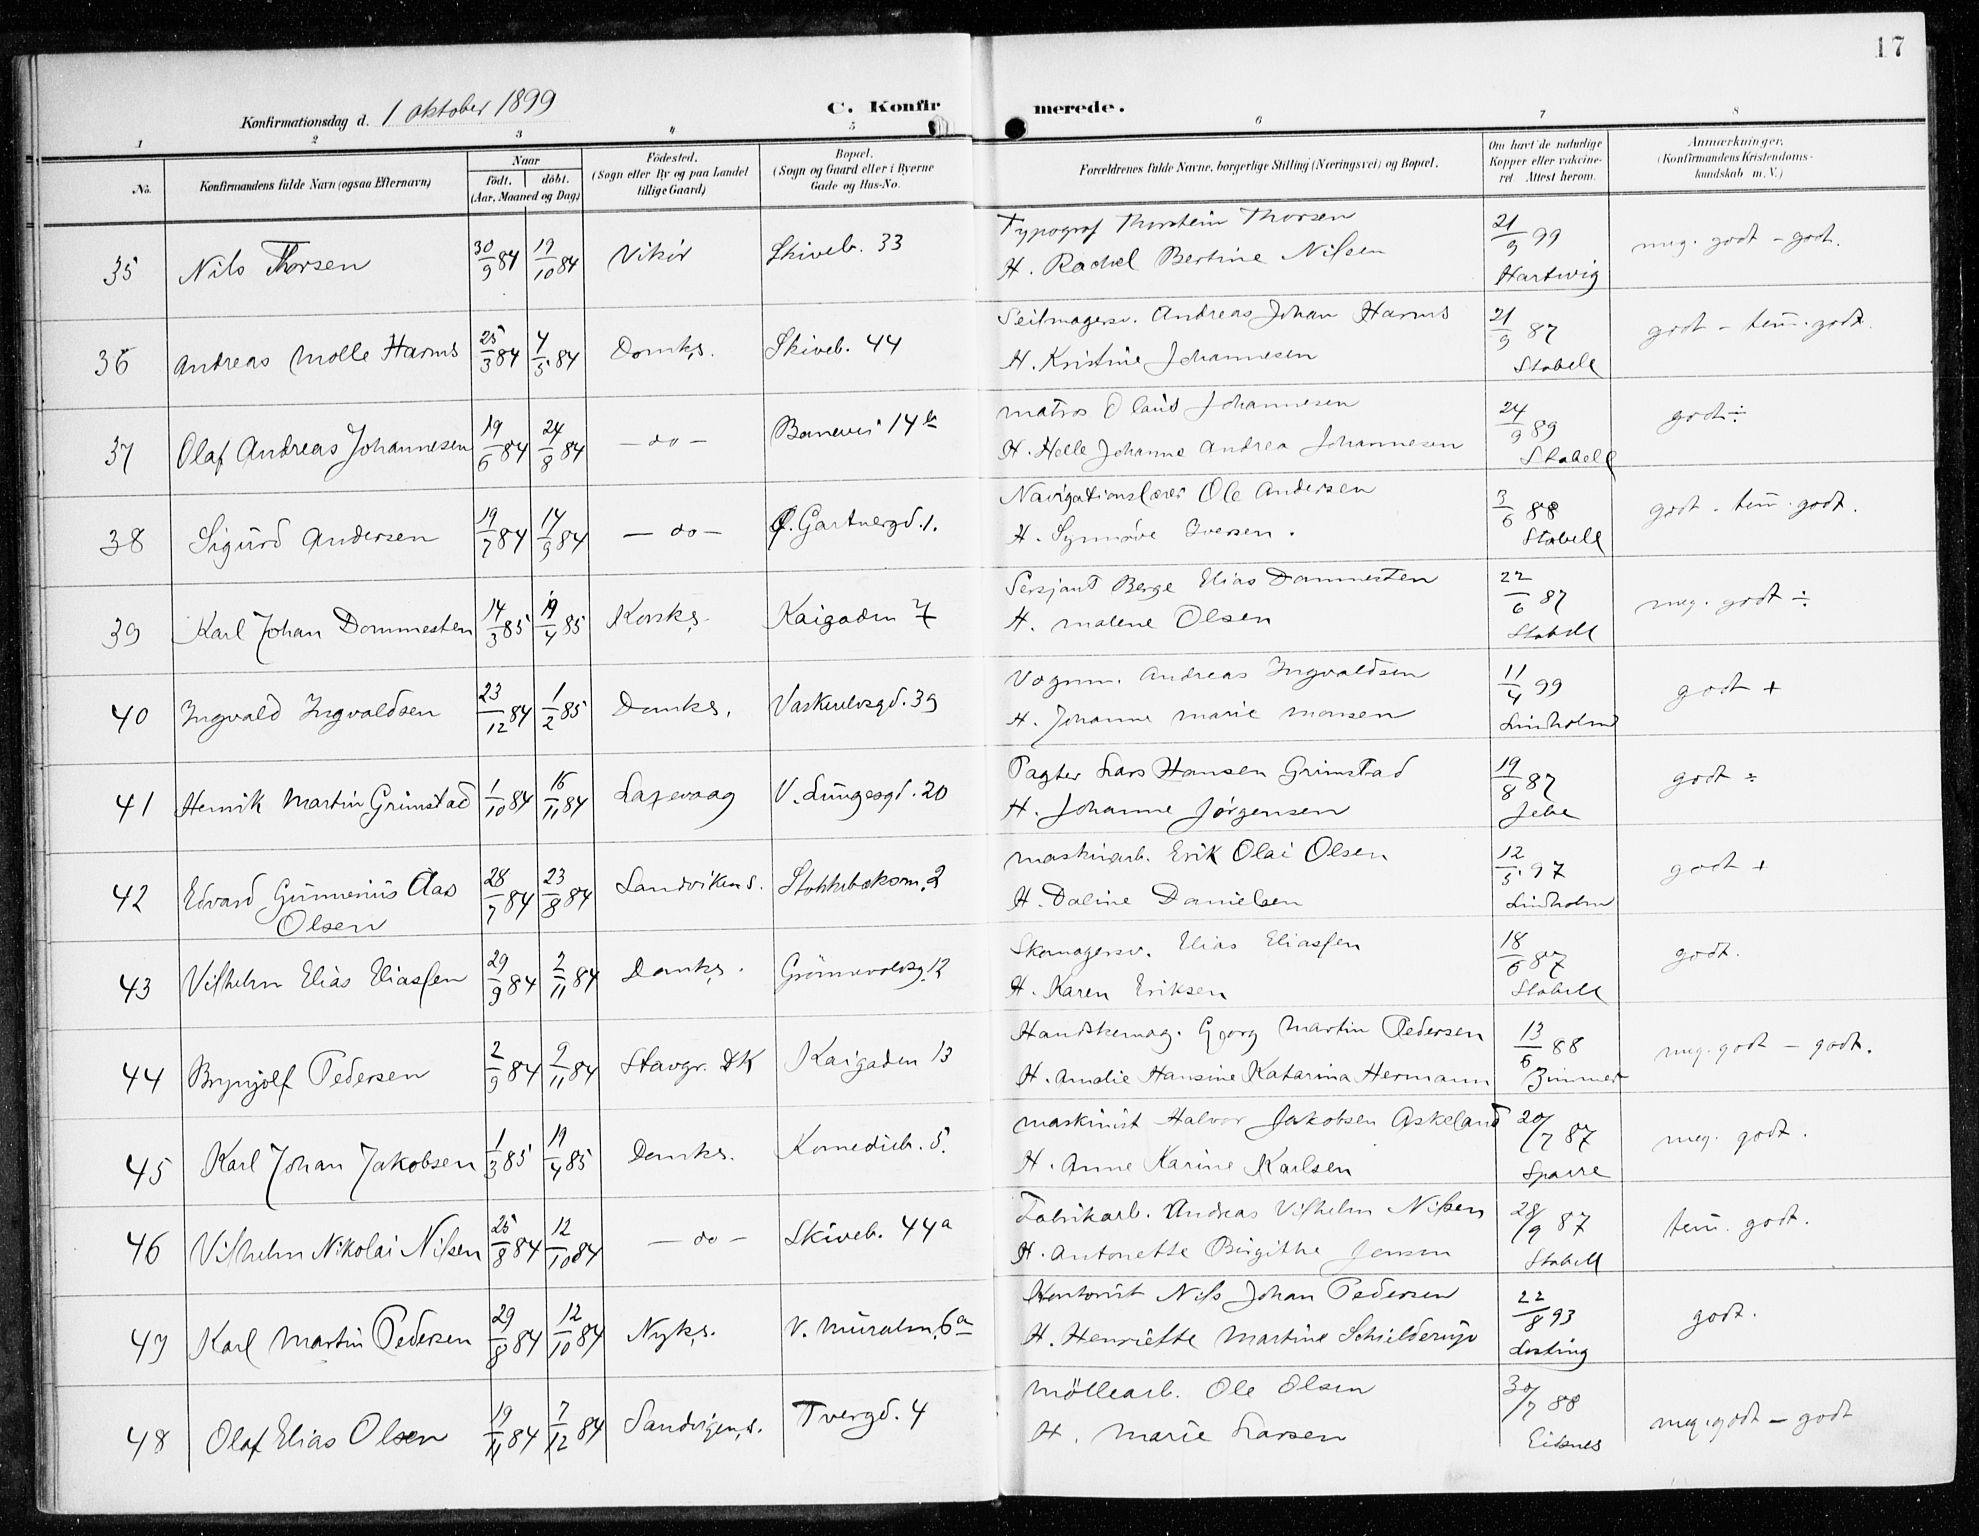 17
Konfirmationsdag d. 1 oktober 1899
C. Konfirmerede.
1 2 3 4 5 6 7 8
No.
Konfirmandens fulde Navn (ogsaa Efternavn)
Naar
født. døbt.
(Aar, Maaned og Dag)
Fødested.
(Sogn eller By og paa Landet
tillige Gaard)
Bopæl.
(Sogn og Gaard eller i Byerne
Gade og Hus-No.
Forældrenes fulde Navne, borgerlige Stilling (Næringsvei) og Bopæl.
Om havt de naturlige
Kopper eller vakcine-
ret Attest herom.
Anmærkninger.
(Konfirmandens Kristendoms-
kundskab m. V.)
35 Nils Thorsen 30/9 84 19/10 84 Vikør Skiveb. 33 Typograf Thorstein Thorsen 21/9 99 meg. godt - godt.
H. Rachel Bertine Nilsen Hartwig
36 Andreas Molle Harms 25/3 84 4/5 84 Domks. Skiveb. 44 Seilmagersv. Andreas Johan Harms 21/9 87 godt - tem. godt.
H. Kristine Johannesen Stabell
37 Olaf Andreas Johannesen 19/6 84 24/8 84 - do - Banevei 14 b Matros Olaus Johannesen 24/9 89 godt ÷
H. Helle Johanne Andrea Johannesen Stabell
38 Sigurd Andersen 19/7 84 14/9 84 - do - Ø. Gartnergd. 1. Navigationslærer Ole Andersen 3/6 88 godt - tem. godt.
H. Synnøve Iversen. Stabell
39 Karl Johan Dommesten 14/3 85 19/4 85 Korsks. Kaigaden 7 Sersjant Berge Elias Dommesten 22/6 87 meg. godt ÷
H. Malene Olsen Stabell
40 Ingvald Ingvaldsen 23/12 84 1/2 85 Domks. Vaskerelvsgd. 39 Vognm. Andreas Ingvaldsen 11/4 99 godt +
H. Johanne Marie Monsen Lindholm
41 Henrik Martin Grimstad 1/10 84 16/11 84 Laxevaag V. Lungegd. 20 Pagter Lars Hansen Grimstad 19/8 87 godt ÷
H. Johanne Jørgensen Jebe
42 Edvard Gunnerius Aas 28/7 84 23/8 84 Sandvikens. 2 Maskinarb. Erik Olai Olsen 12/5 97 godt +
Olsen H. Daline Danielsen Lindholm
43 Vilhelm Elias Eliassen 29/9 84 2/11 84 Domks. Grønnevoldsg. 12 Skomagersv. Elias Eliassen 18/6 87 godt.
H. Karen Eriksen Stabell
44 Brynjolf Pedersen 2/9 84 9/11 84 Stavgr. DK Kaigaden 13 Handskemag. Georg Martin Pedersen 13/6 88 meg. godt - godt.
H. Amalie Hansine Katarina Hermann Zimmer
45 Karl Johan Jakobsen 1/3 85 19/4 85 Domks. Komedieb. 5. Maskinist Halvor Jakobsen Askeland 20/7 87 meg. godt.
H. Anne Karine Karlsen Sparre
46 Vilhelm Nikolai Nilsen 25/8 84 12/10 84 - do - Skiveb. 44a Fabrikarb. Andreas Vilhelm Nilsen 28/9 87 tem. godt.
H. Antonette Birgithe Jensen Stabell
47 Karl Martin Pedersen 29/8 84 12/10 84 Nyks. V. Muralm. 6a Kontorist Nils Johan Pedersen 22/8 93 godt.
H. Henriette Martine Schielderup Losting
48 Olaf Elias Olsen 19/11 84 7/12 84 Sandvigens. Tvergd. 4 Møllearb. Ole Olsen 30/7 88 meg. godt - godt
H. Marie Larsen Eidsnes